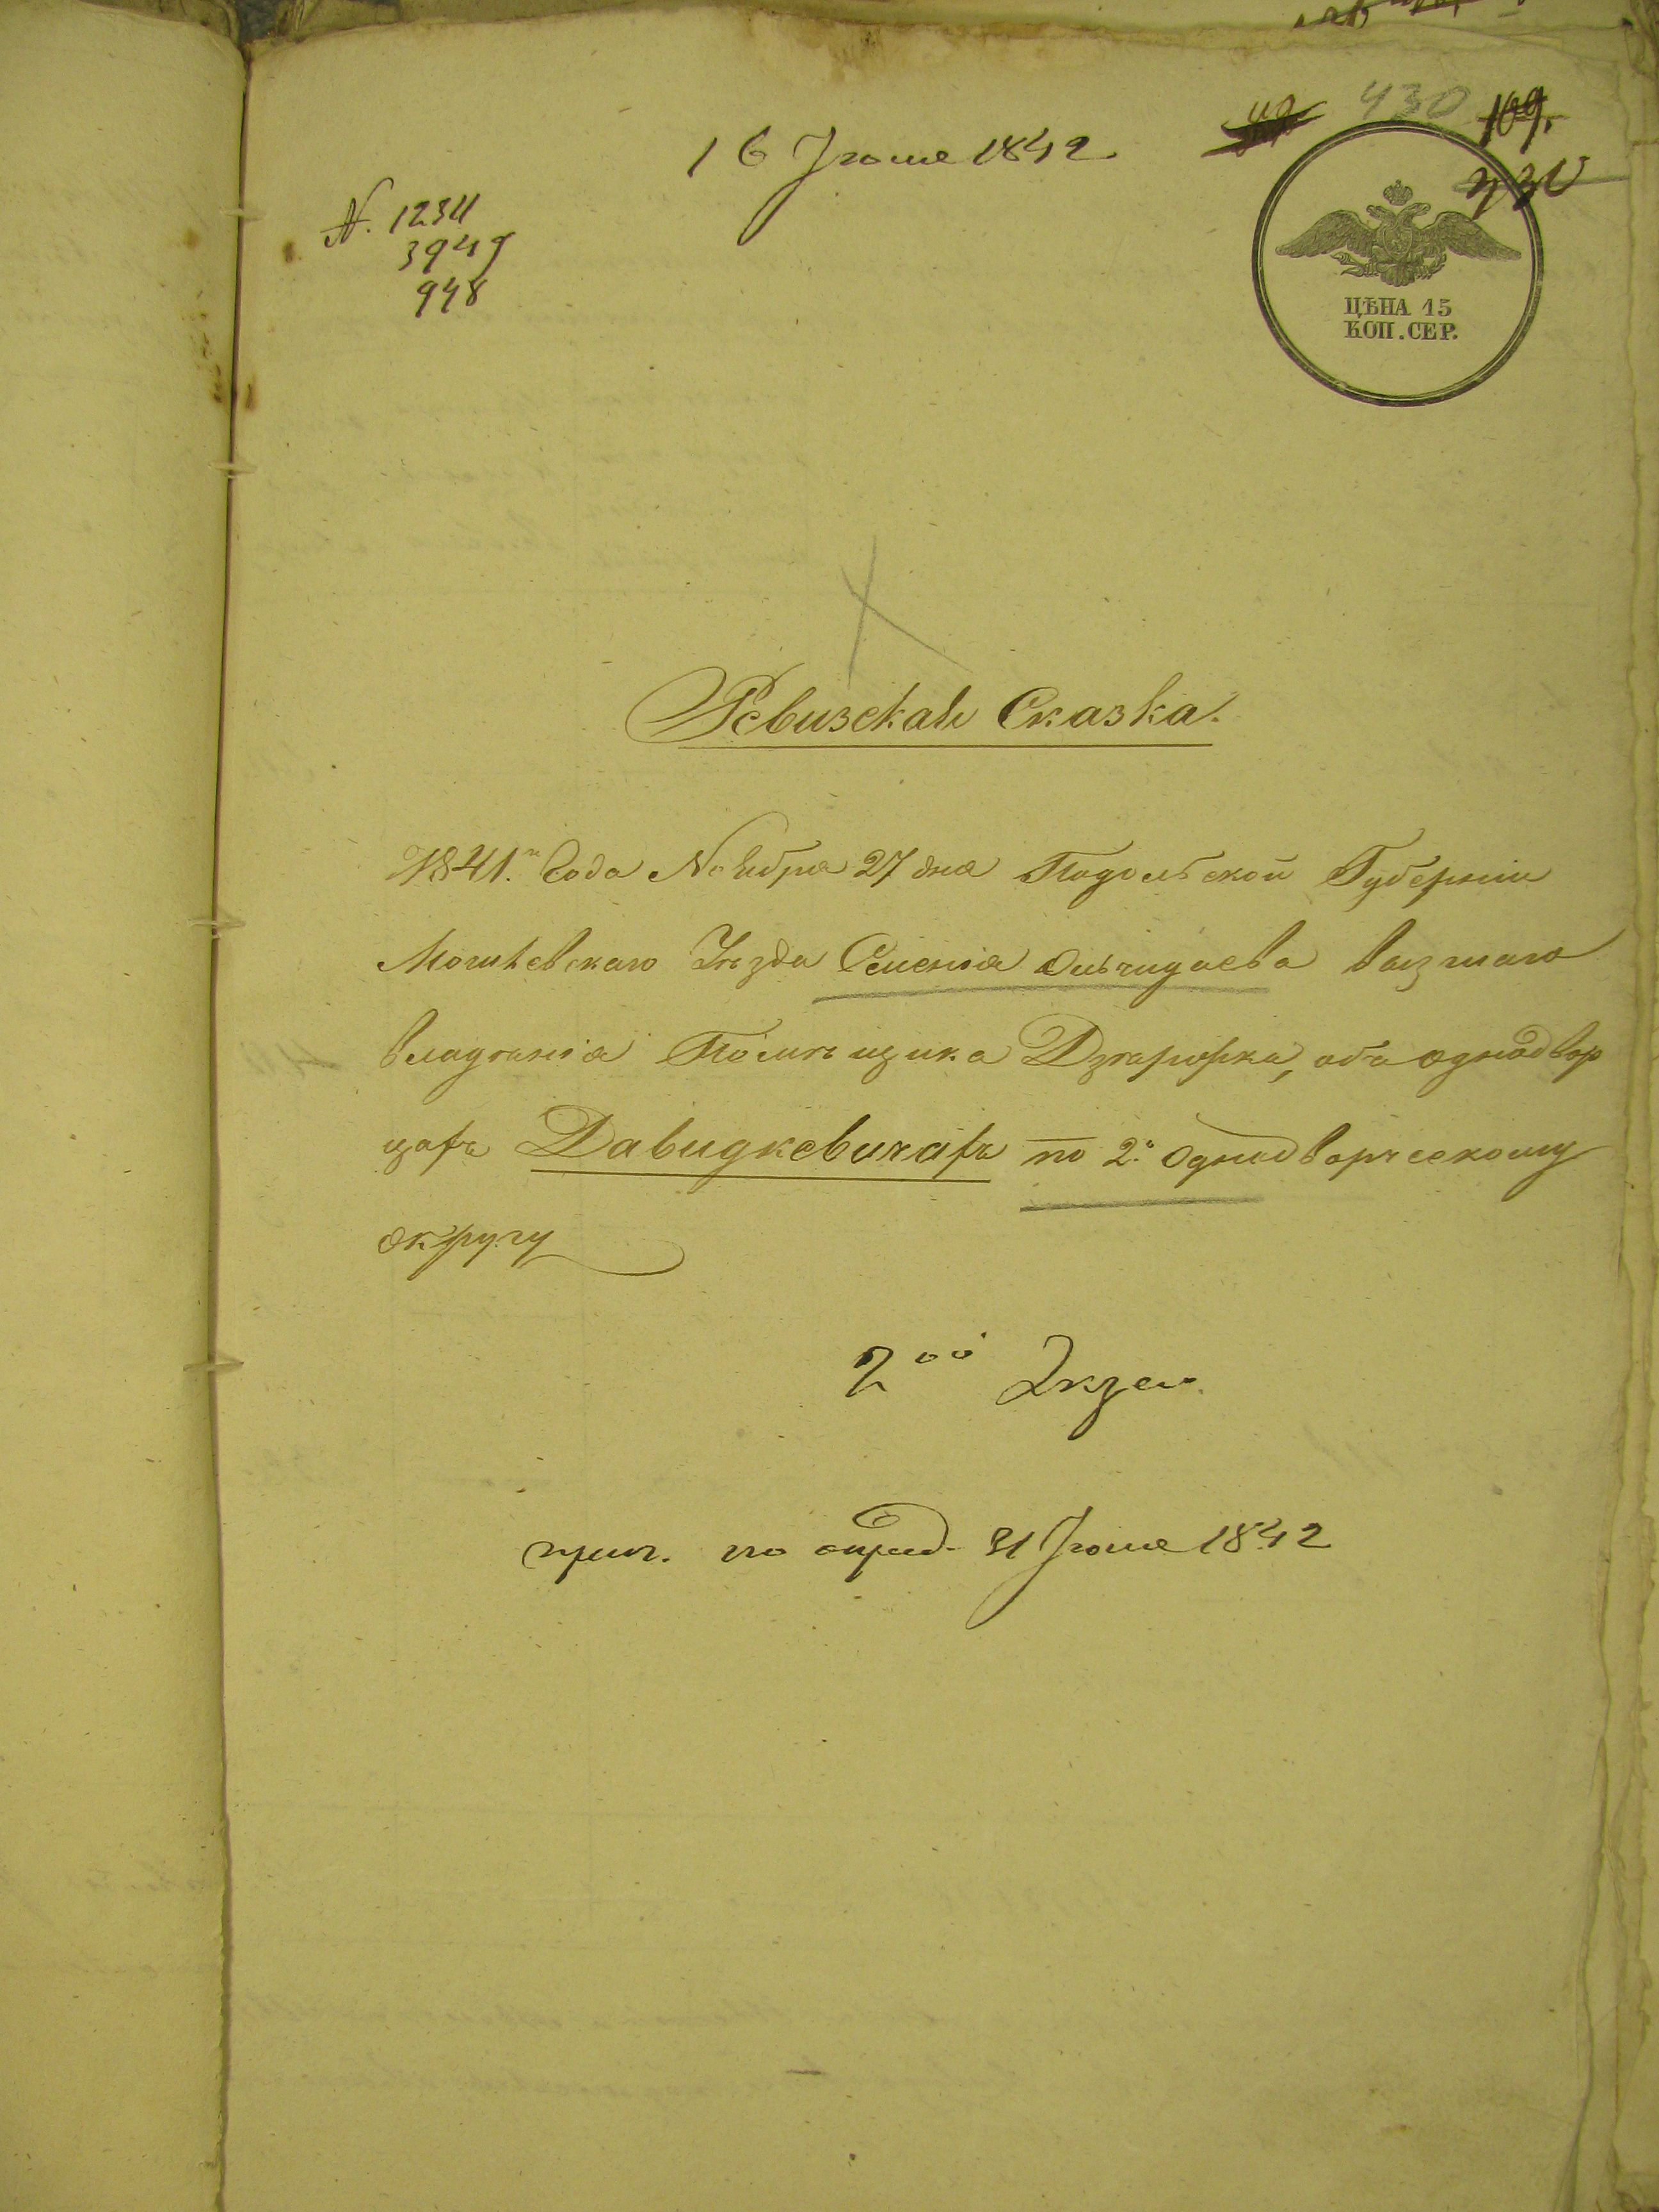 430 109.
16 Июня 1842
330
N. 1234
3949
948
ЦѢНА 15
КОП. СЕР.
Ревизская Сказка.
1841.го Года Ноября 27 дня Подольской Губерніи
Могилевскаго Уѣзда Селенія Ольчидаева
владѣнія Помѣщика объ однодвор
цахъ Давидкевичахъ по 2му Однодворческому
округу
2ой Экзем.
по опред. 31 Июля 1842